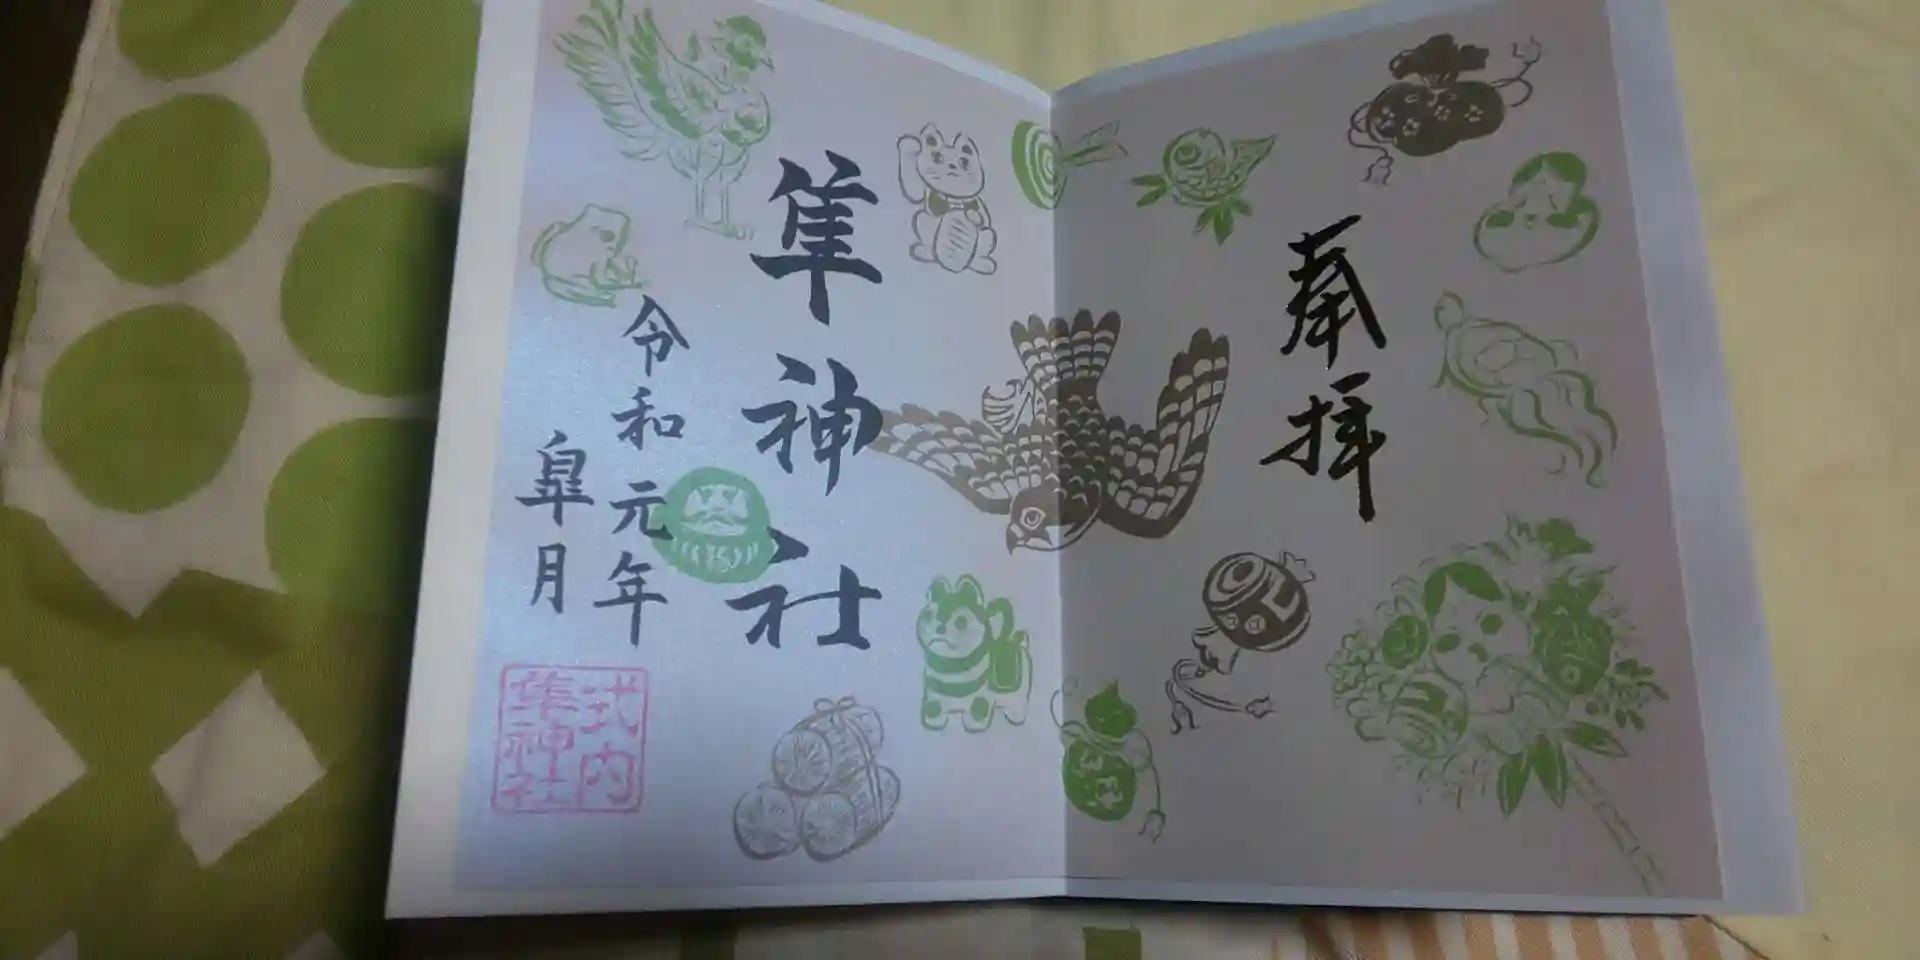 奉拝
隼神社
令和元年
皐月
式内
隼神社